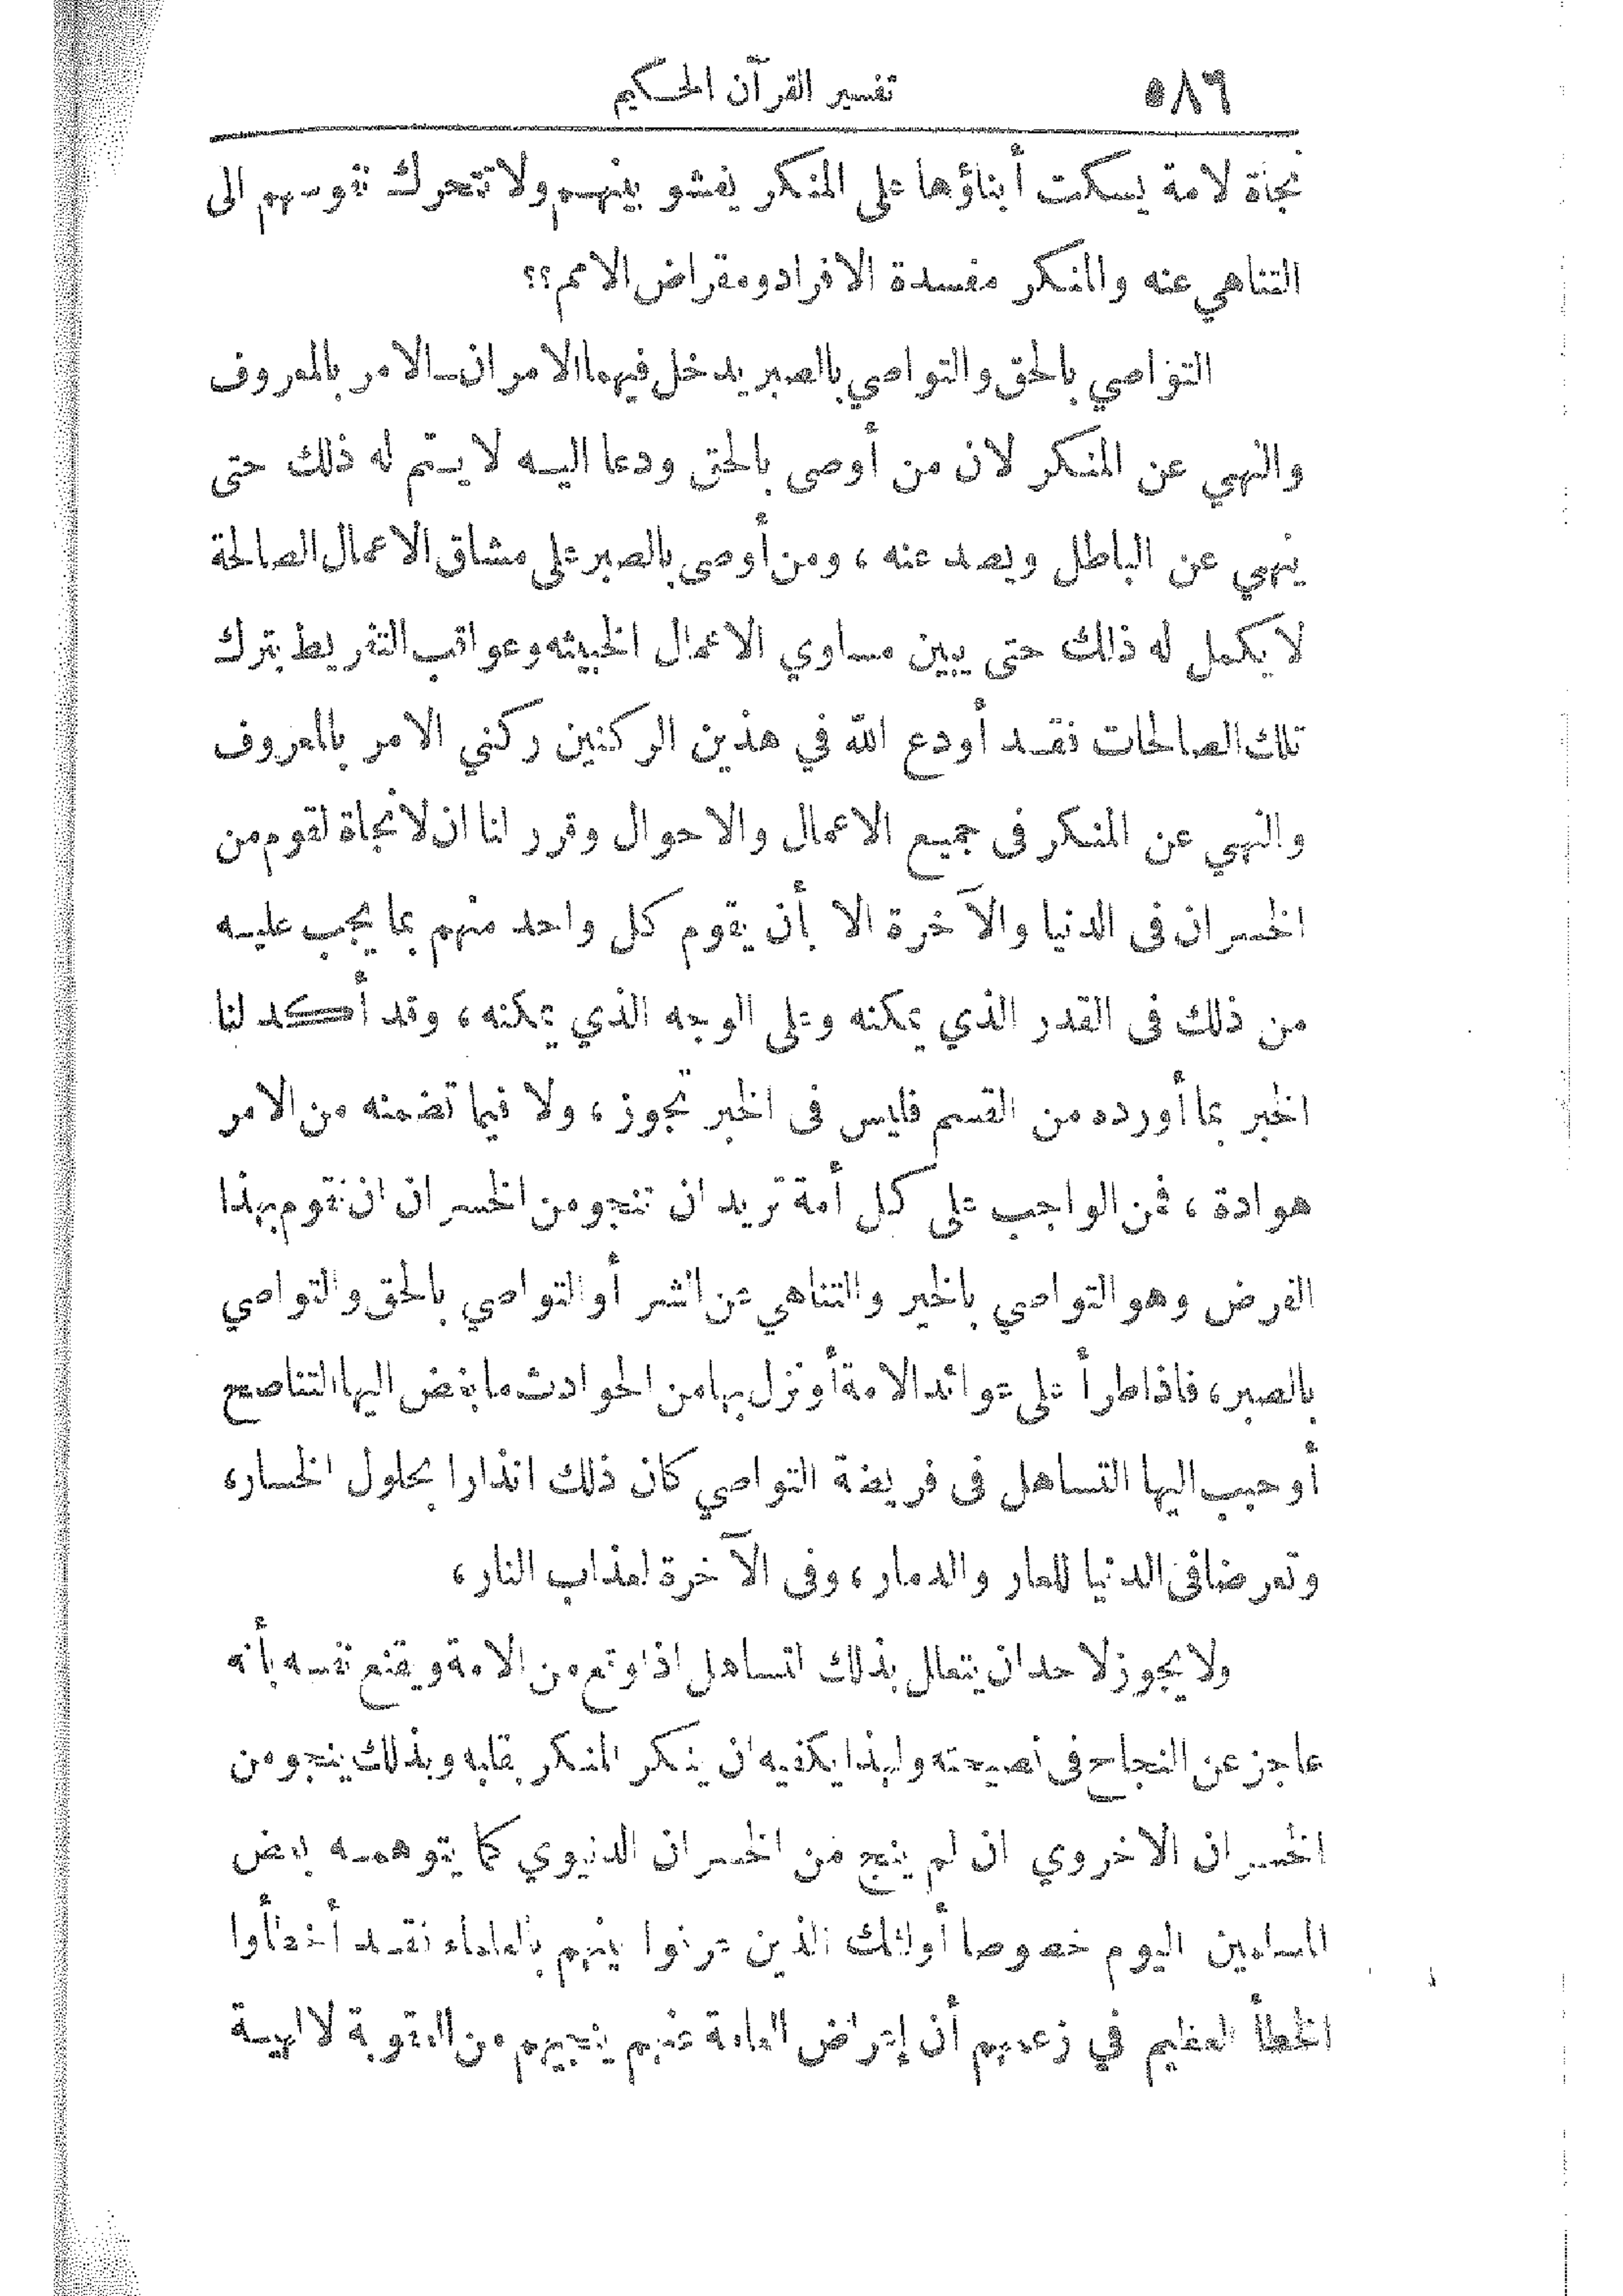 ٥٨٦ تفسير القرآن الحكيم
نجاة لامة يسكت أبناؤها على المنكر يفشو بينهم ولا تتحرك نفوسهم الى
التناهي عنه والمنكر مفسدة الافراد ومقراض الامم؟؟
التواصي بالحق والتواصي بالصبر يدخل فيهما الامران ـ الامر بالمعروف
والنهي عن المنكر لان من أوصى بالحق ودعا اليه لا يتم له ذلك حتى
ينهي عن الباطل ويصد عنه ، ومن أوصى بالصبر على مشاق الاعمال الصالحة
لا يكمل له ذلك حتى يبين مساوي الاعمال الخبيثه وعواقب التفريط بترك
تلك الصالحات فقد أودع الله في هذين الركنين ركني الامر بالمعروف
والنهي عن المنكر فى جميع الاعمال والاحوال وقرر لنا ان لا نجاة لقوم من
الخسران فى الدنيا والآخرة الا بأن يقوم كل واحد منهم بما يجب عليه
من ذلك فى القدر الذي يمكنه وعلى الوجه الذي يمكنه ، وقد أكد لنا
الخبر بما أورده من القسم فليس فى الخبر تجوز ، ولا فيما تضمنه من الامر
هوادة ، فمن الواجب على كل أمة تريد ان تنجو من الخسران ان تقوم بهذا
الفرض وهو التواصي بالخير والتناهي عن الشر أو التواصي بالحق والتواصي
بالصبر ، فاذا طرأ على عوائد الامة أو نزل بها من الحوادث ما بغض اليها التناصح
أو حبب اليها التساهل فى فريضة التواصي كان ذلك انذارا بحلول الخسار ،
وتعرضا فى الدنيا للعار والدمار ، وفى الآخرة لعذاب النار ،
ولا يجوز لاحد ان يتعلل بذلك التساهل اذا وقع من الامة ويقنع نفسه بأنه
عاجز عن النجاح فى نصيحته ولهذا يكفيه ان ينكر المنكر بقلبه وبذلك ينجو من
الخسران الاخروي ان لم ينج من الخسران الدنيوي كما يتوهمه بعض
المسلمين اليوم خصوصا أولئك الذين عرفوا بينهم بالعلماء فقد أخطأوا
الخطأ العظيم في زعمهم أن إعراض العامة عنهم ينجيهم من العقوبة الالهية